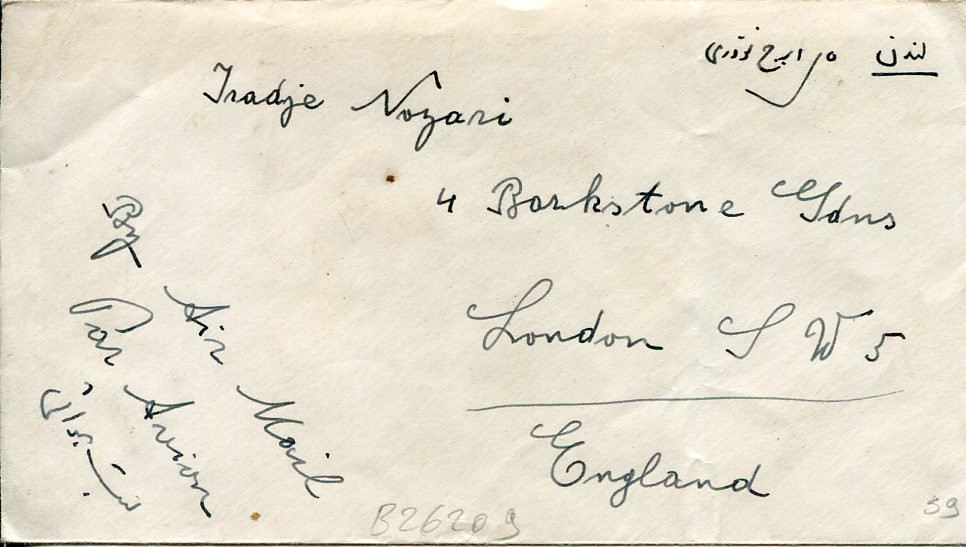 لندن ایرج نوذری
Iradje Nozari
4 Barkstone Gdns
London S W 5
England
By Air Mail
Par Avion
B26209
59